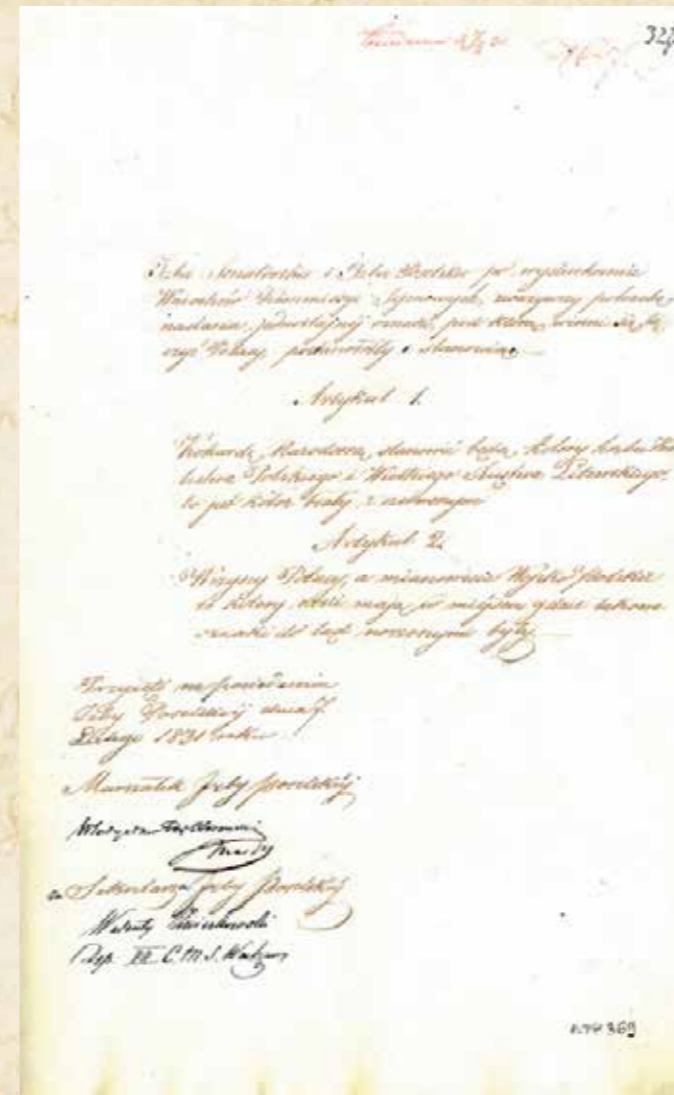 327
Izba Senatorska i Izba Poselska po wysłuchaniu
Wniosków Kommissyi Sejmowych, zważywszy potrzebę
nadania jednostajnéj oznaki, pod którą winni się łą
czyć Polacy, postanowiły i stanowią
Artykuł 1.
Kokardę Narodową stanowić będą kolory herbu Kró
lestwa Polskiego i Wielkiego Xięstwa Litewskiego,
to jest kolor biały z czerwonym
Artykuł 2.
Wszyscy Polacy, a mianowicie Woysko Polskie
te kolory nosić mają w miejscu gdzie takowe
oznaki do tąd noszonymi były.
Przyjęto na posiedzeniu
Izby Poselskiéj dnia 7
Lutego 1831 roku
Marszałek Izby Poselskiéj
Władysław
za Sekretarza Izby Poselskiéj
Walenty Zwierkowski
Dep. C. M. S. Warszawy
369